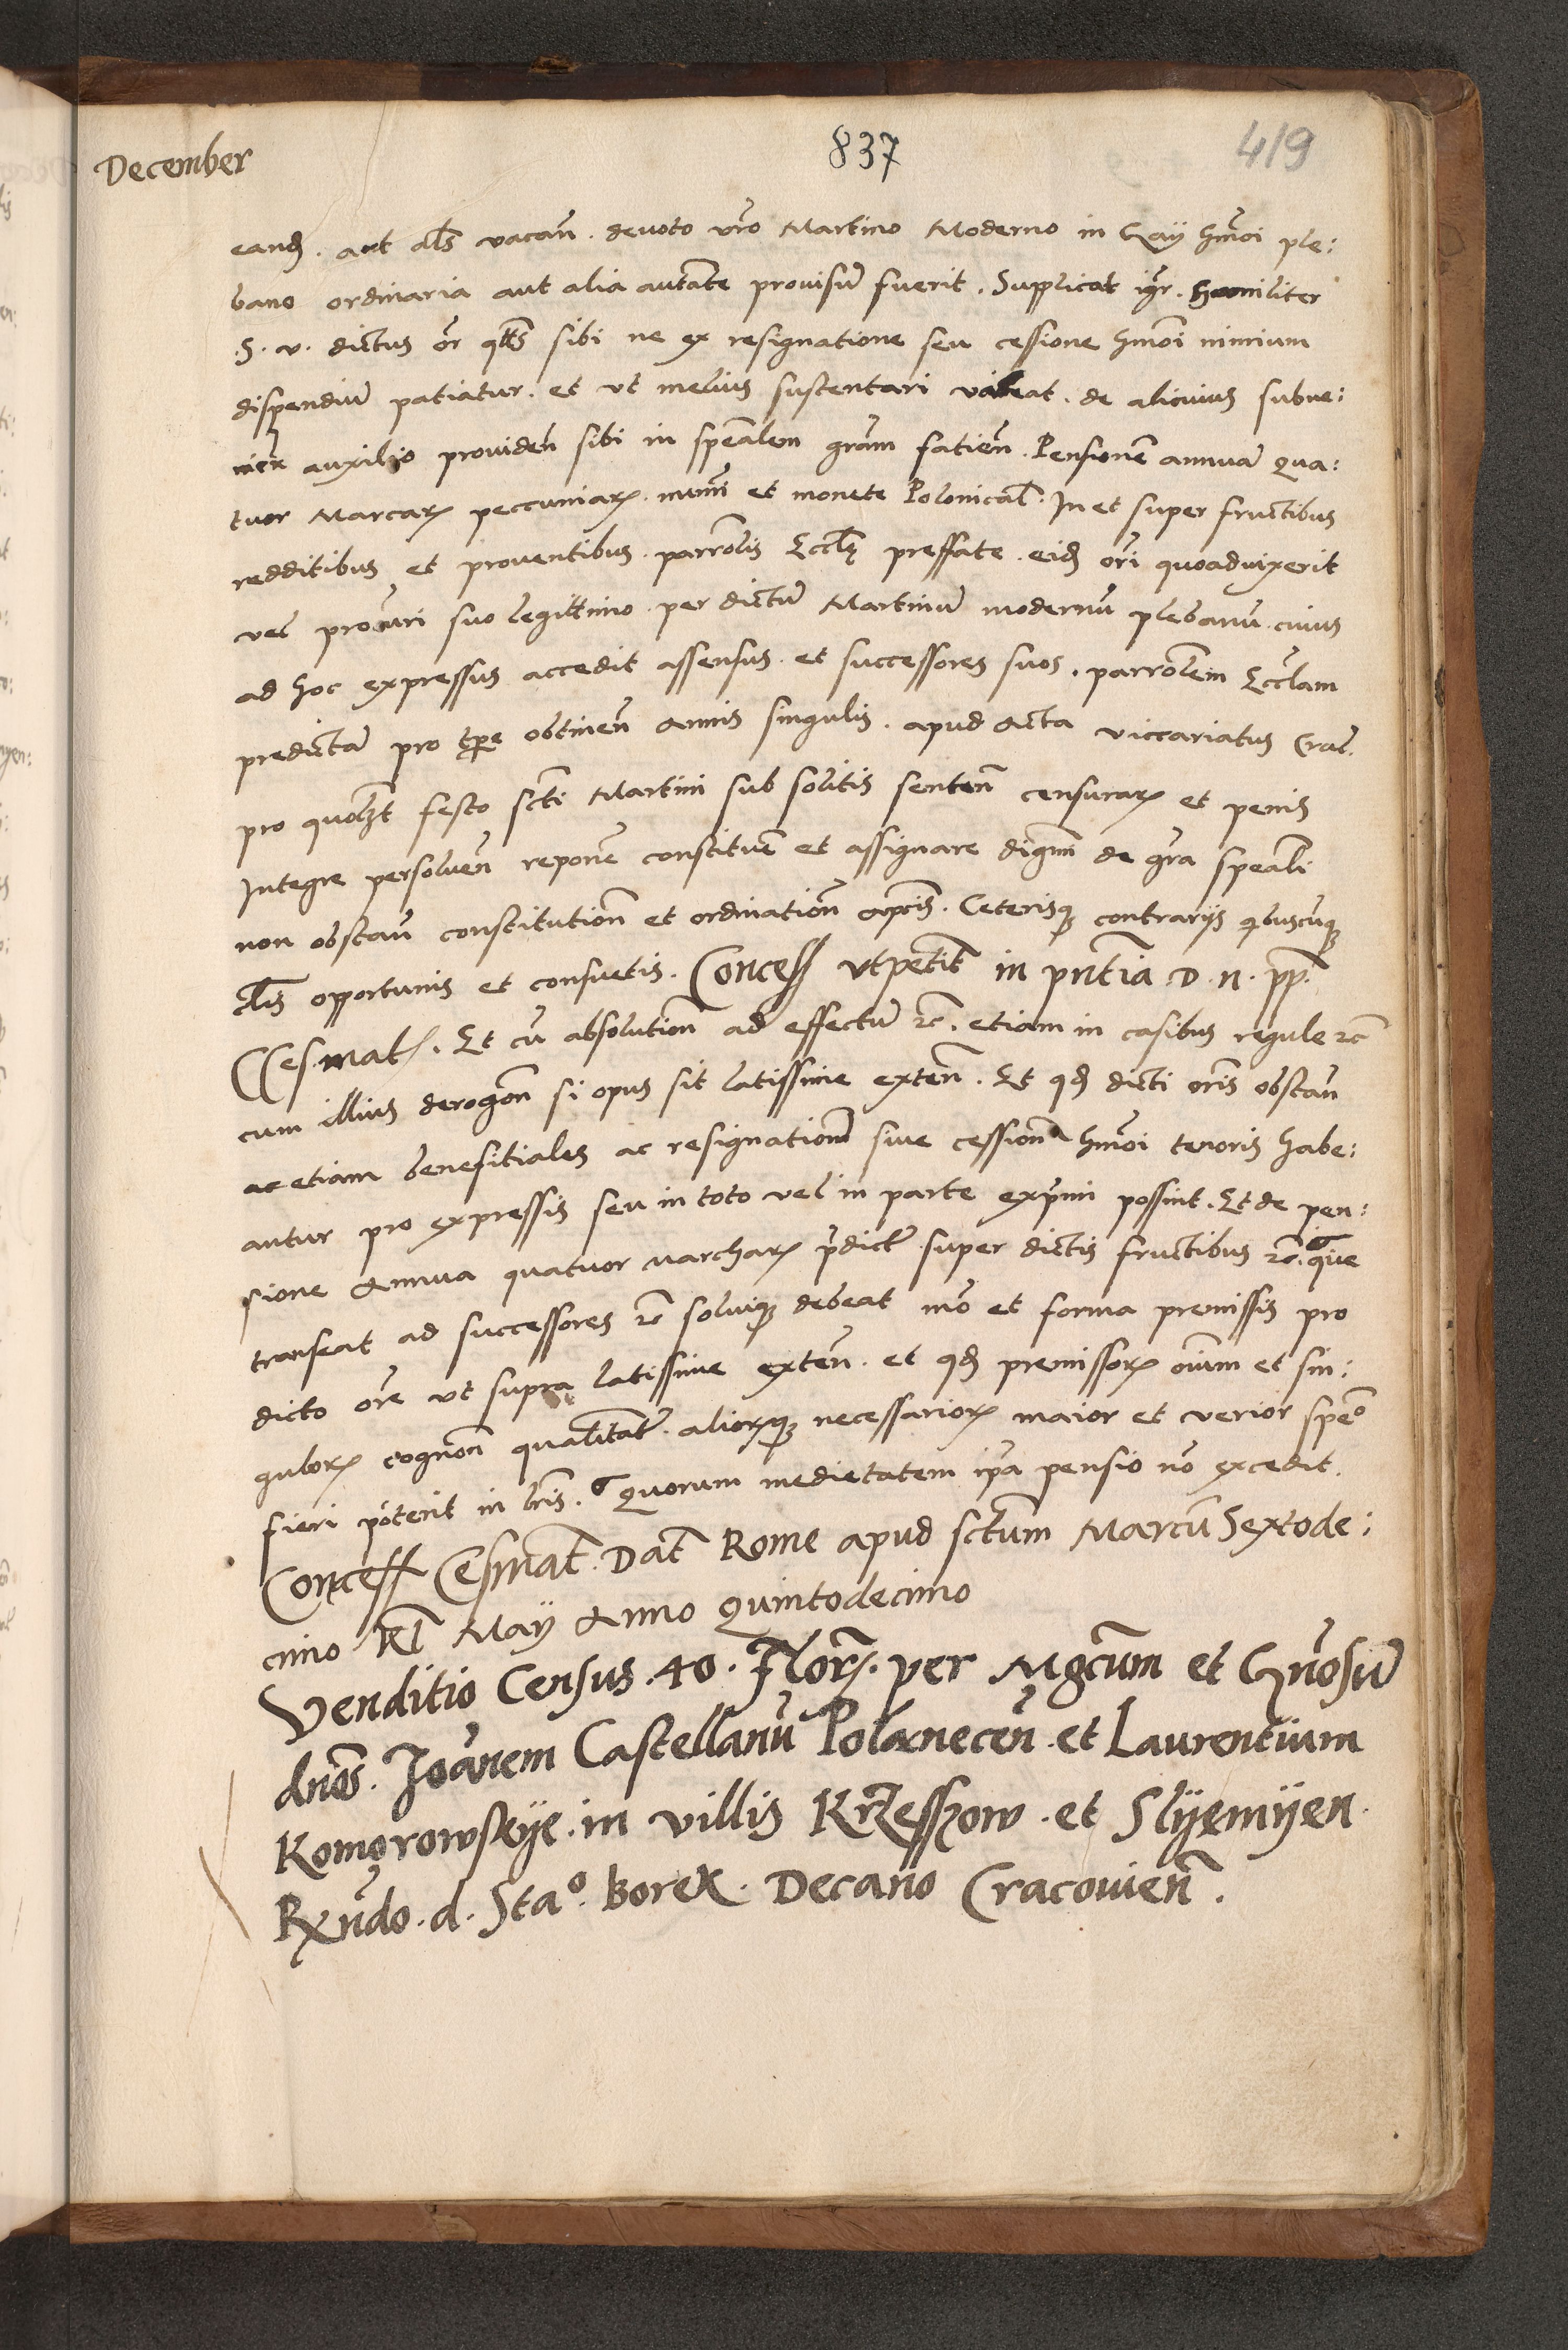 December
837
419
eand. aut als vacan. devoto vro Martino Moderno in Gay hmoi ple:
bano ordinaria aut alia autate provisu fuerit. Supplicat igr. humiliter
.S. v. dictus or qtus sibi ne ex resignatione seu cessione hmoi nimium
dispendiu patiatur. et ut melius sustentari valeat. de alicuius subve:
nier auxilio providen sibi in spealem gram fatien. Pensione annua qua:
tuor Marcar peccuniar. numi et monete Polonical. In et super fructibus
redditibus et proventibus. parrolis Eccle preffate. eid ori quoadvixerit
vel procuri suo legittimo. per dictu Martinu modernu plebanu. cuius
ad hoc expressus accedit assensus. et successores suos. parrolem Ecclam
predicta pro tpe obtinen annis singulis. apud acta viccariatus Crac.
pro quolzt festo scti Martini sub solitis senten censurar et penis
Integre persolven reponem constituem et assignare dignemi de gra speali
non obstan constitution et ordination aplcis. Ceterisq contrarijs qbuscuq
clis opportunis et consuetis. Concess ut petit in pntia D. n. pp.
C Cesmat. Et cu absolution ad effectu rc. etiam in casibus regule rc
cum illius derogon si opus sit latissime exten. Et qd dicti oris obstan
ac etiam benefitiales ac resignationis sive cessionis hmoi tenoris habe:
antur pro expressis seu in toto vel in parte exprimi possint. Et de pen:
sione annua quatuor marchar pdict super dictis fructibus rc. que
transeat ad successores rc solviq debeat mo et forma premissis pro
dicto ore ut supra latissime exten. et qd premissor oium et sin:
gulor cognon qualitat. aliorq necessarior maior et verior speo
fieri poterit in lris. Quorum medietatem ipa pensio no excedit.
Concess Cesmat. Dat Rome apud sctum Marcu Sextode:
cimo Kl May Anno Quintodecimo
Venditio Census. 40. Flor. per Mgcum et Gnosu
dnos. Joanem Castellanu Polanecen. et Laurentium
Komorowskye. in villis Krzesshow. et Slyemyen.
Rxndo. d. Stao. Borek. Decano Cracovien.